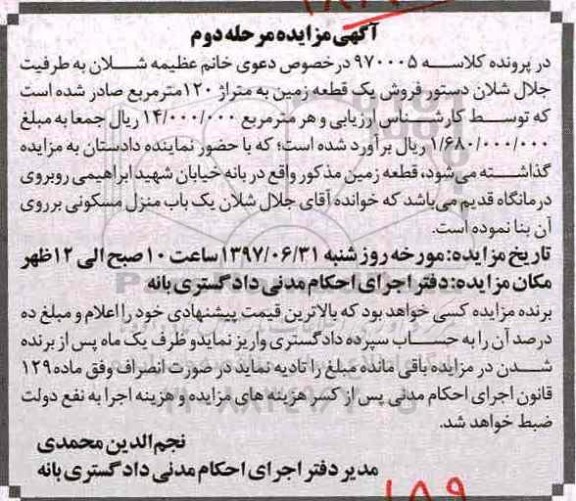 آگهی مزایده مرحله دوم
در پرونده کلاسه ۹۷۰۰۰۵ در خصوص دعوی خانم عظیمه شلان به طرفیت
جلال شلان دستور فروش یک قطعه زمین به متراژ ۱۲۰مترمربع صادر شده است
که توسط کارشناس ارزیابی و هر مترمربع ۱۴/۰۰۰/۰۰۰ ریال جمعا به مبلغ
۱/۶۸۰/۰۰۰/۰۰۰ ریال برآورد شده است؛ که با حضور نماینده دادستان به مزایده
گذاشته می‌شود، قطعه زمین مذکور واقع در بانه خیابان شهید ابراهیمی روبروی
درمانگاه قدیم می‌باشد که خوانده آقای جلال شلان یک باب منزل مسکونی بر روی
آن بنا نموده است.
تاریخ مزایده: مورخه روز شنبه ۱۳۹۷/۰۶/۳۱ ساعت ۱۰ صبح الی ۱۲ ظهر
مکان مزایده: دفتر اجرای احکام مدنی دادگستری بانه
برنده مزایده کسی خواهد بود که بالاترین قیمت پیشنهادی خود را اعلام و مبلغ ده
درصد آن را به حساب سپرده دادگستری واریز نماید و ظرف یک ماه پس از برنده
شدن در مزایده باقی مانده مبلغ را تادیه نماید در صورت انصراف وفق ماده ۱۲۹
قانون اجرای احکام مدنی پس از کسر هزینه های مزایده و هزینه اجرا به نفع دولت
ضبط خواهد شد.
نجم‌الدین محمدی
مدیر دفتر اجرای احکام مدنی دادگستری بانه
۱۸۹